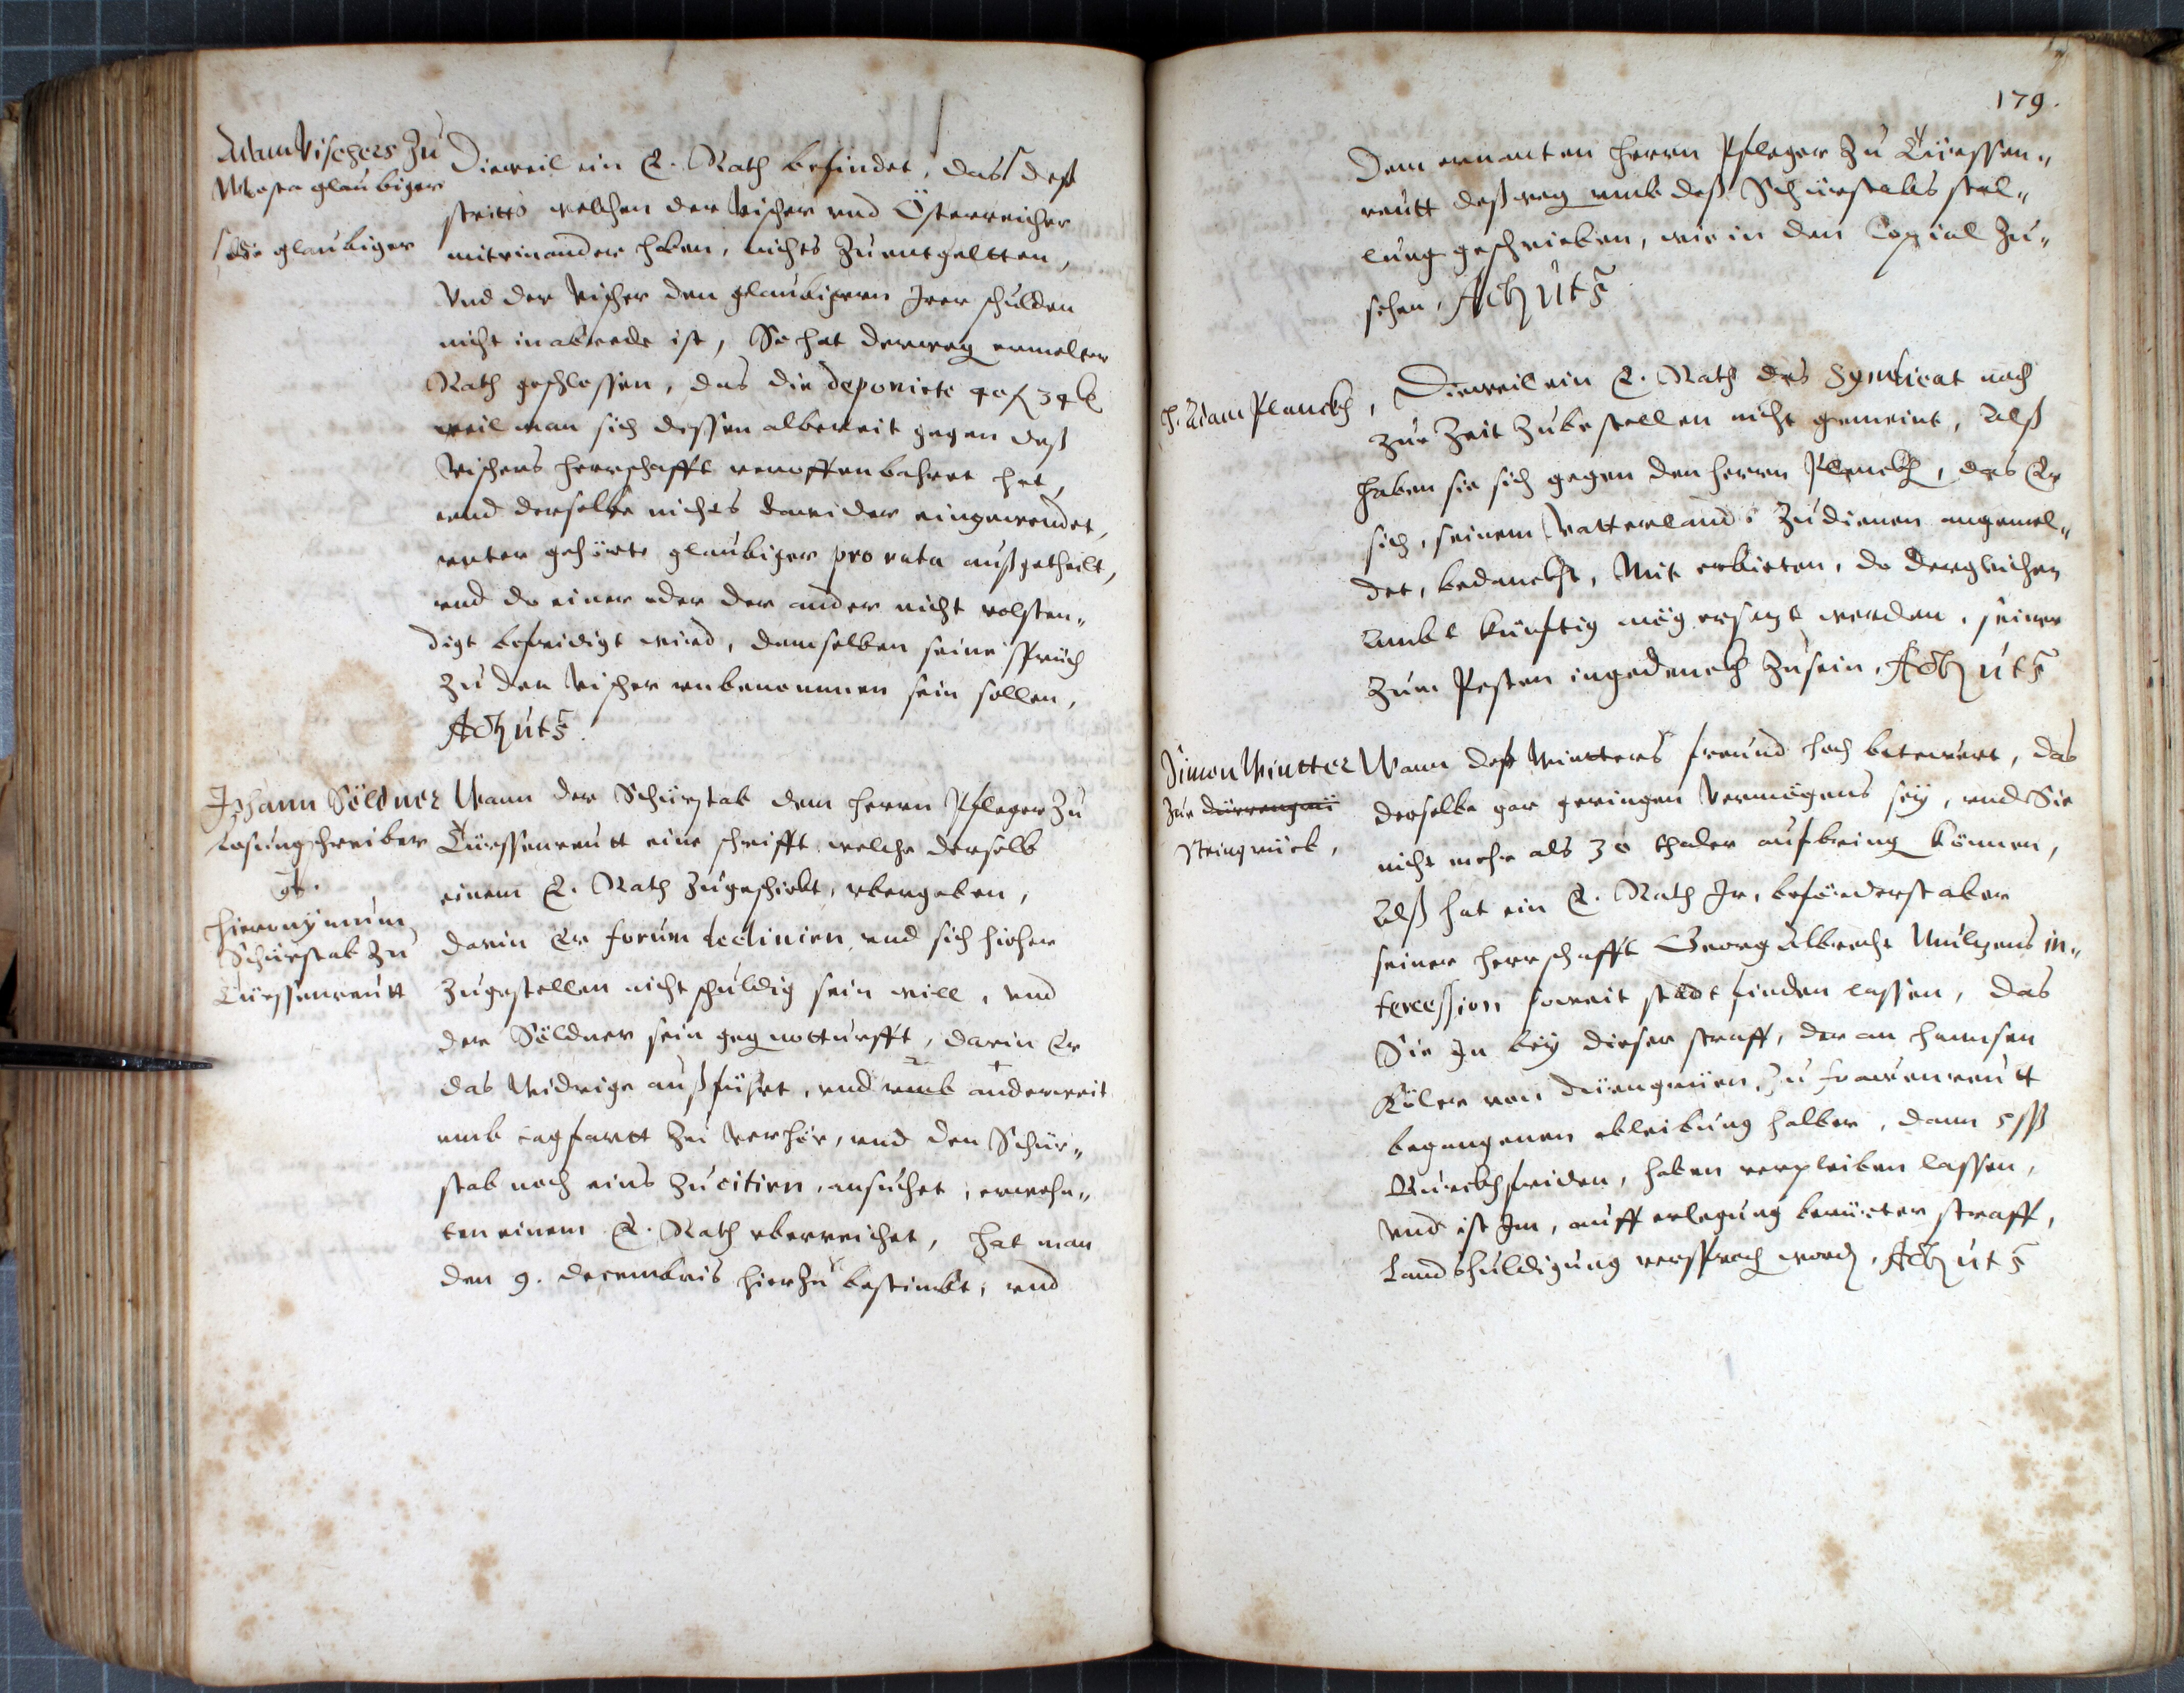 Adam Vischers Zu
Mosen glaubiger
die glaubiger
Dieweil ein E. Rath befindet, das deß
stritts welchen der Vischer vnd Österreicher
miteinander haben, nichts Zuentgeltten,
Vnd der Vischer den glaubigern Irer schulden
nicht inabrede ist, So hat derweg ermelter
Rath geschlossen, das die deponirte
weil man sich dessen albereit gegen deß
Vischers herrschafft veroffenbahret hat,
vnd derselbe nichts darwider eingewendet,
vnter gehörte glaubiger pro rata außgetheilt,
vnd do einer oder der ander nicht volsten„
digt befridigt wird, demselben seine sprüch
Zu den Vischer vnbenommen sein sollen,
Act: ut s.
Johann Söldner
Losungschreiber
Hieronÿmum
Schürstab Zu
Türssenreutt
Wann der Schürstab dem herrn Pfleger Zu
Türssenreutt eine schrifft welche derselb
einem E. Rath Zugeschickt, vbergeben,
darin Er forum declinirn, vnd sich hieher
Zugestellen nicht schuldig sein will, vnd
der Söldner sein geg notturfft, darin Er
das Widrige außführt, vnd vmb anderweit
vmb tagfartt Zu Verhör, vnd den Schür„
stab noch eins Zu citirn, ansuchet, erwehn„
ten einem E. Rath vberreichet, hat man
den 9. decembris hierzu bestimbt, vnd
179.
dem ernanten herrn Pfleger Zu Türssen„
reutt deßweg vmb deß Schürstabs stel„
lung geschrieben, wie in den Copial Zu„
sehen, Act: ut s.
H. Adam Planckh,
Dieweil ein E. Rath das Syndicat noch
zur Zeit Zubestellen nicht gemeint, Alß
haben sie sich gegen den herrn Planckh, das Er
sich, seinem Vatterland Zudienen angemel„
det, bedanckht, Mit erbieten, do dergleichen
Ambt künftig mög ersezt werden, seiner
Zum Pesten ingedenckh Zusein, Act: ut s.
Simon Wintter
Zur dürrengrün
Steingrüeb,
Wann deß Wintters freund hoch beteuert, das
derselbe gar geringen Vermögens seÿ, vnd Sie
nicht mehr als 30 thaler aufbring können,
Alß hat ein E. Rath Ir, besonderst aber
seiner herrschafft Georg Albrecht Mulzens in„
tercession soweit stadt finden lassen, das
Sie In beÿ dieser straff, der an hannsen
Kölern von dürngrüen, Zu frauenreutt
begangenen ableibung halber, dann 5 ß
Burckhfriden, haben verpleiben lassen,
Vnd ist Im, auff erlegung berürter straff,
Landshuldigung versproch word, Act: ut s.